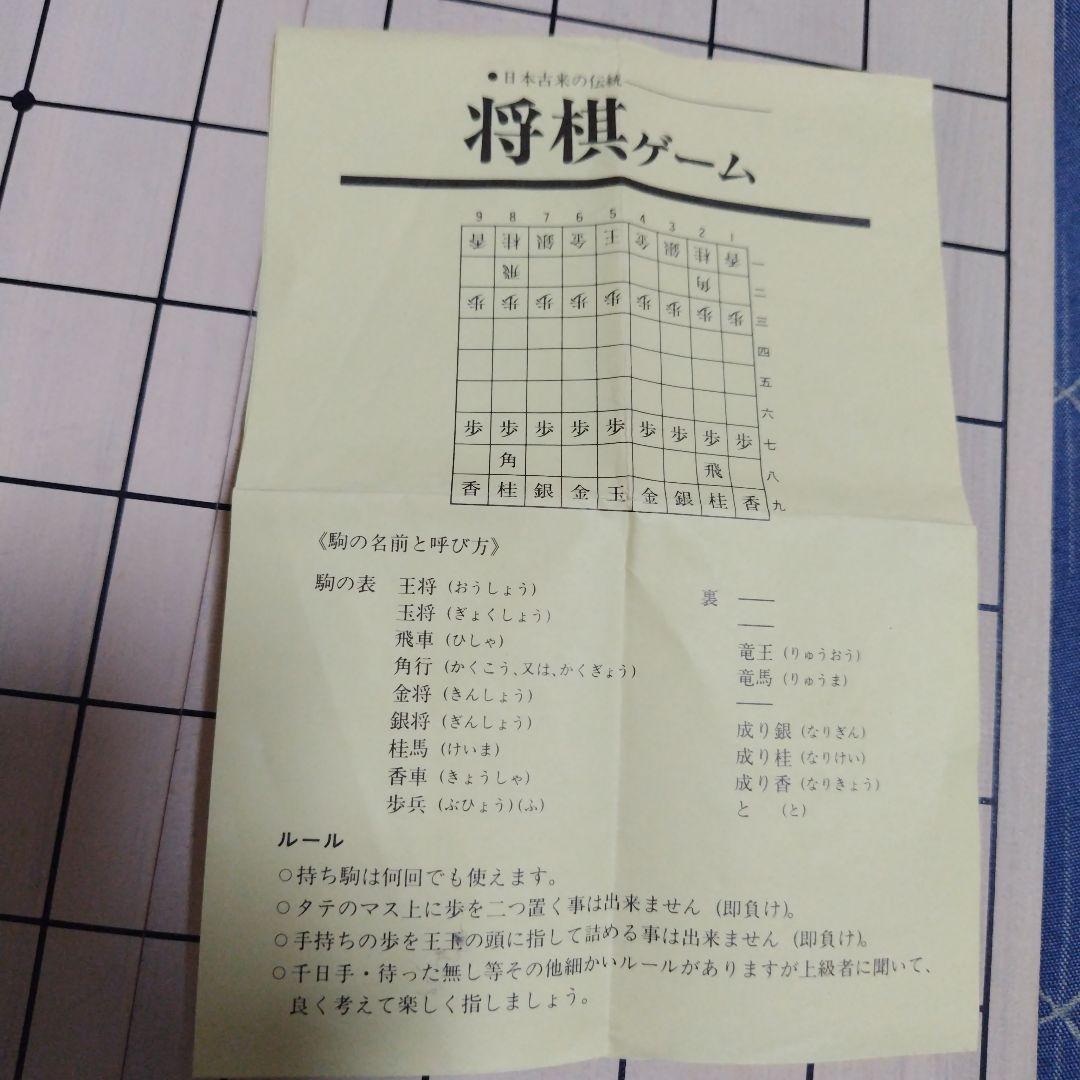 ●日本古来の伝統
将棋ゲーム
9 8 7 6 5 4 3 2 1
香 桂 銀 金 王 金 銀 桂 香 一
飛 角 二
歩 歩 歩 歩 歩 歩 歩 歩 歩 三
四
五
六
歩 歩 歩 歩 歩 歩 歩 歩 歩 七
角 飛 八
香 桂 銀 金 玉 金 銀 桂 香 九
《駒の名前と呼び方》
駒の表 王将 (おうしょう) 裏 ——
玉将 (ぎょくしょう) ——
飛車 (ひしゃ) 竜王 (りゅうおう)
角行 (かくこう、又は、かくぎょう) 竜馬 (りゅうま)
金将 (きんしょう) ——
銀将 (ぎんしょう) 成り銀 (なりぎん)
桂馬 (けいま) 成り桂 (なりけい)
香車 (きょうしゃ) 成り香 (なりきょう)
歩兵 (ぶひょう)(ふ) と (と)
ルール
○持ち駒は何回でも使えます。
○タテのマス上に歩を二つ置く事は出来ません (即負け)。
○手持ちの歩を王玉の頭に指して詰める事は出来ません (即負け)。
○千日手・待った無し等その他細かいルールがありますが上級者に聞いて、
良く考えて楽しく指しましょう。